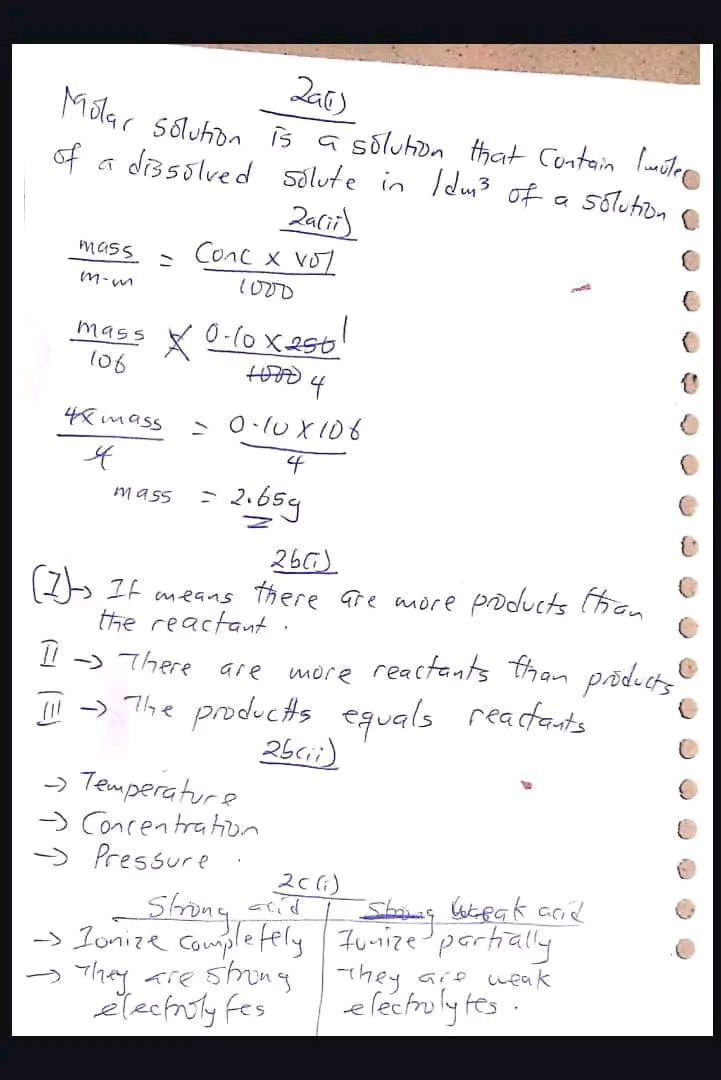 2a(i)
Molar solution is a solution that contain 1mole
of a dissolved solute in 1dm³ of a solution
2a(ii)
mass / m-m = Conc x vol / 1000
mass / 106 = 0.10 x 250 1 / 1000 4
4 x mass / 4 = 0.10 x 106 / 4
mass = 2.65g
2b(i)
(I) → It means there are more products than
the reactant.
II → There are more reactants than products
III → The products equals reactants
2b(ii)
→ Temperature
→ Concentration
→ Pressure.
2c(i)
Strong acid | Strong weak acid
→ Ionize completely | Ionize partially
→ They are strong | They are weak
electrolytes | electrolytes.